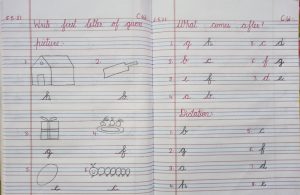 5.5.21 C.W.
Write first letter of given
picture.
1. 2.
h b
3. 4.
g f
5. 6.
e c
5.5.21 C.W.
What comes after?
1. g h 5. c d
2. b c 6. f g
3. e f 7. d e
4. c b
Dictation
1. b 5. c
2. g 6. f
3. a 7. d
4. h 8. e